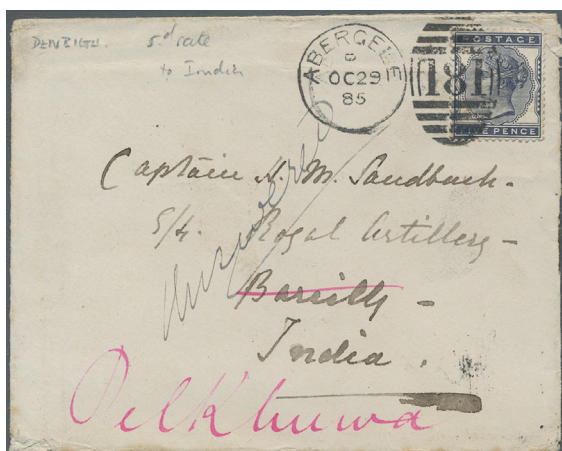 DENBIGH. 5.d rate
to India
ABERGELE
OC 29
85
181
POSTAGE
FIVE PENCE
Captain H. M. Sandbach.
5/4. Royal Artillery -
Bareilly -
India.
Answered
Pilkhuwa